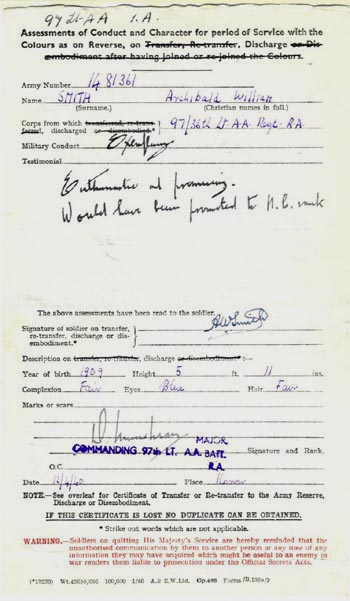 97 Lt AA I.A.
Assessments of Conduct and Character for period of Service with the
Colours as on Reverse, on Transfer, Re-transfer, Discharge or Dis-
embodiment after having joined or re-joined the Colours.
Army Number 1481361
Name SMITH Archibald William
(Surname.) (Christian names in full.)
Corps from which transferred, re-trans-
ferred, discharged or disembodied.* 97/36th Lt A.A. Regt. R.A.
Military Conduct Exemplary
Testimonial
Enthusiastic and promising.
Would have been promoted to N.C. rank
The above assessments have been read to the soldier.
Signature of soldier on transfer,
re-transfer, discharge or dis-
embodiment.*
AWSmith
Description on transfer, re-transfer, discharge or disembodiment* :—
Year of birth 1909 Height 5 ft. 11 ins.
Complexion Fair Eyes Blue Hair Fair
Marks or scars
MAJOR
COMMANDING 97TH LT. A.A. BATT. Signature and Rank.
O.C. R.A.
Date 12/4/40 Place
NOTE.—See overleaf for Certificate of Transfer or Re-transfer to the Army Reserve,
Discharge or Disembodiment.
IF THIS CERTIFICATE IS LOST NO DUPLICATE CAN BE OBTAINED.
* Strike out words which are not applicable.
WARNING.—Soldiers on quitting His Majesty's Service are hereby reminded that the
unauthorised communication by them to another person at any time of any
information they may have acquired which might be useful to an enemy in
war renders them liable to prosecution under the Official Secrets Acts.
100,000 1/40 A.& E.W.Ltd. Gp.698 Forms